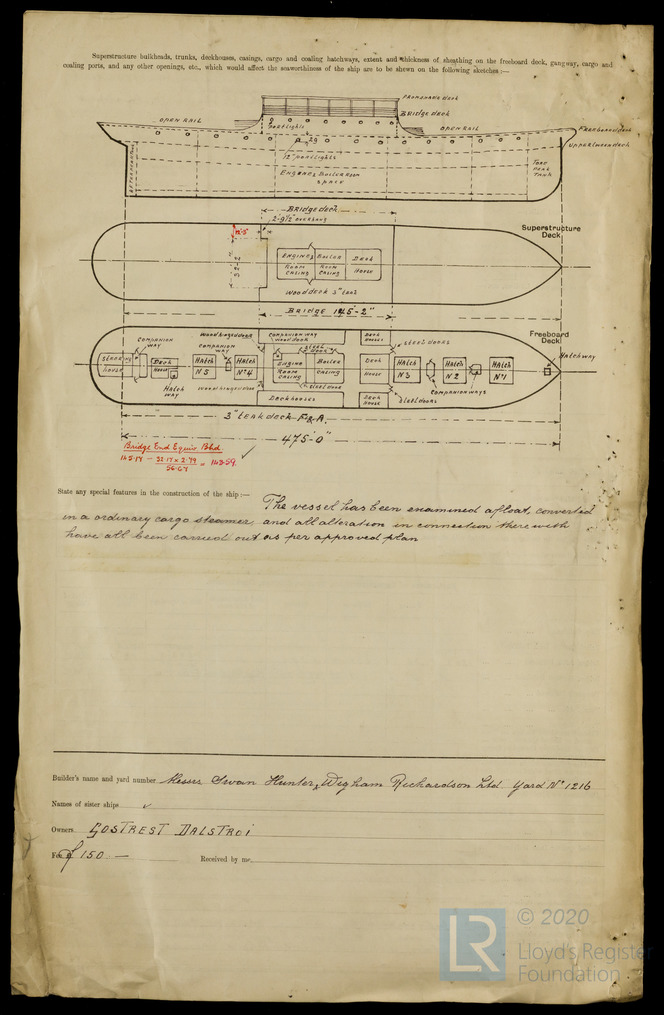 Superstructure bulkheads, trunks, deckhouses, casings, cargo and coaling hatchways, extent and thickness of sheathing on the freeboard deck, gangway, cargo and
coaling ports, and any other openings, etc., which would affect the seaworthiness of the ship are to be shewn on the following sketches:—
PROMENADE DECK
BRIDGE DECK
OPEN RAIL
PORTLIGHTS
OPEN RAIL
FREEBOARD DECK
UPPER TWEEN DECK
12" PORTLIGHTS
ENGINE & BOILER ROOM
SPACE
FORE
PEAK
TANK
BRIDGE DECK
2-9½" OVERHANG
Superstructure
Deck
ENGINE
ROOM
CASING
BOILER
ROOM
CASING
DECK
HOUSE
WOOD DECK 3" TEAK
BRIDGE 145'-2"
Freeboard
Deck
COMPANION
WAY
WOOD HINGED DOOR
COMPANION
WAY
COMPANION WAY
WOOD DOOR
DECK
HOUSES
STEEL DOORS
HATCHWAY
HOUSE
DECK
HOUSE
HATCH
Nº5
HATCH
Nº4
STEEL
DOOR
ENGINE
ROOM
CASING
BOILER
CASING
DECK
HOUSE
HATCH
Nº3
HATCH
Nº2
HATCH
Nº1
HATCH
WAY
WOOD HINGED DOOR
STEEL DOOR
DECKHOUSES
DECK
HOUSE
STEEL DOORS
COMPANION WAYS
3" TEAK DECK F & A.
475'-0"
Bridge End Equiv. Bhd
State any special features in the construction of the ship:— The vessel has been examined afloat, converted
in a ordinary cargo steamer and all alteration in connection therewith
have all been carried out as per approved plan
Builder's name and yard number Messrs Swan Hunter, & Wigham Richardson Ltd. Yard Nº 1216
Names of sister ships
Owners GOSTREST DALSTROI
Fee £ 150 —
Received by me,
LR
© 2020
Lloyd's Register
Foundation